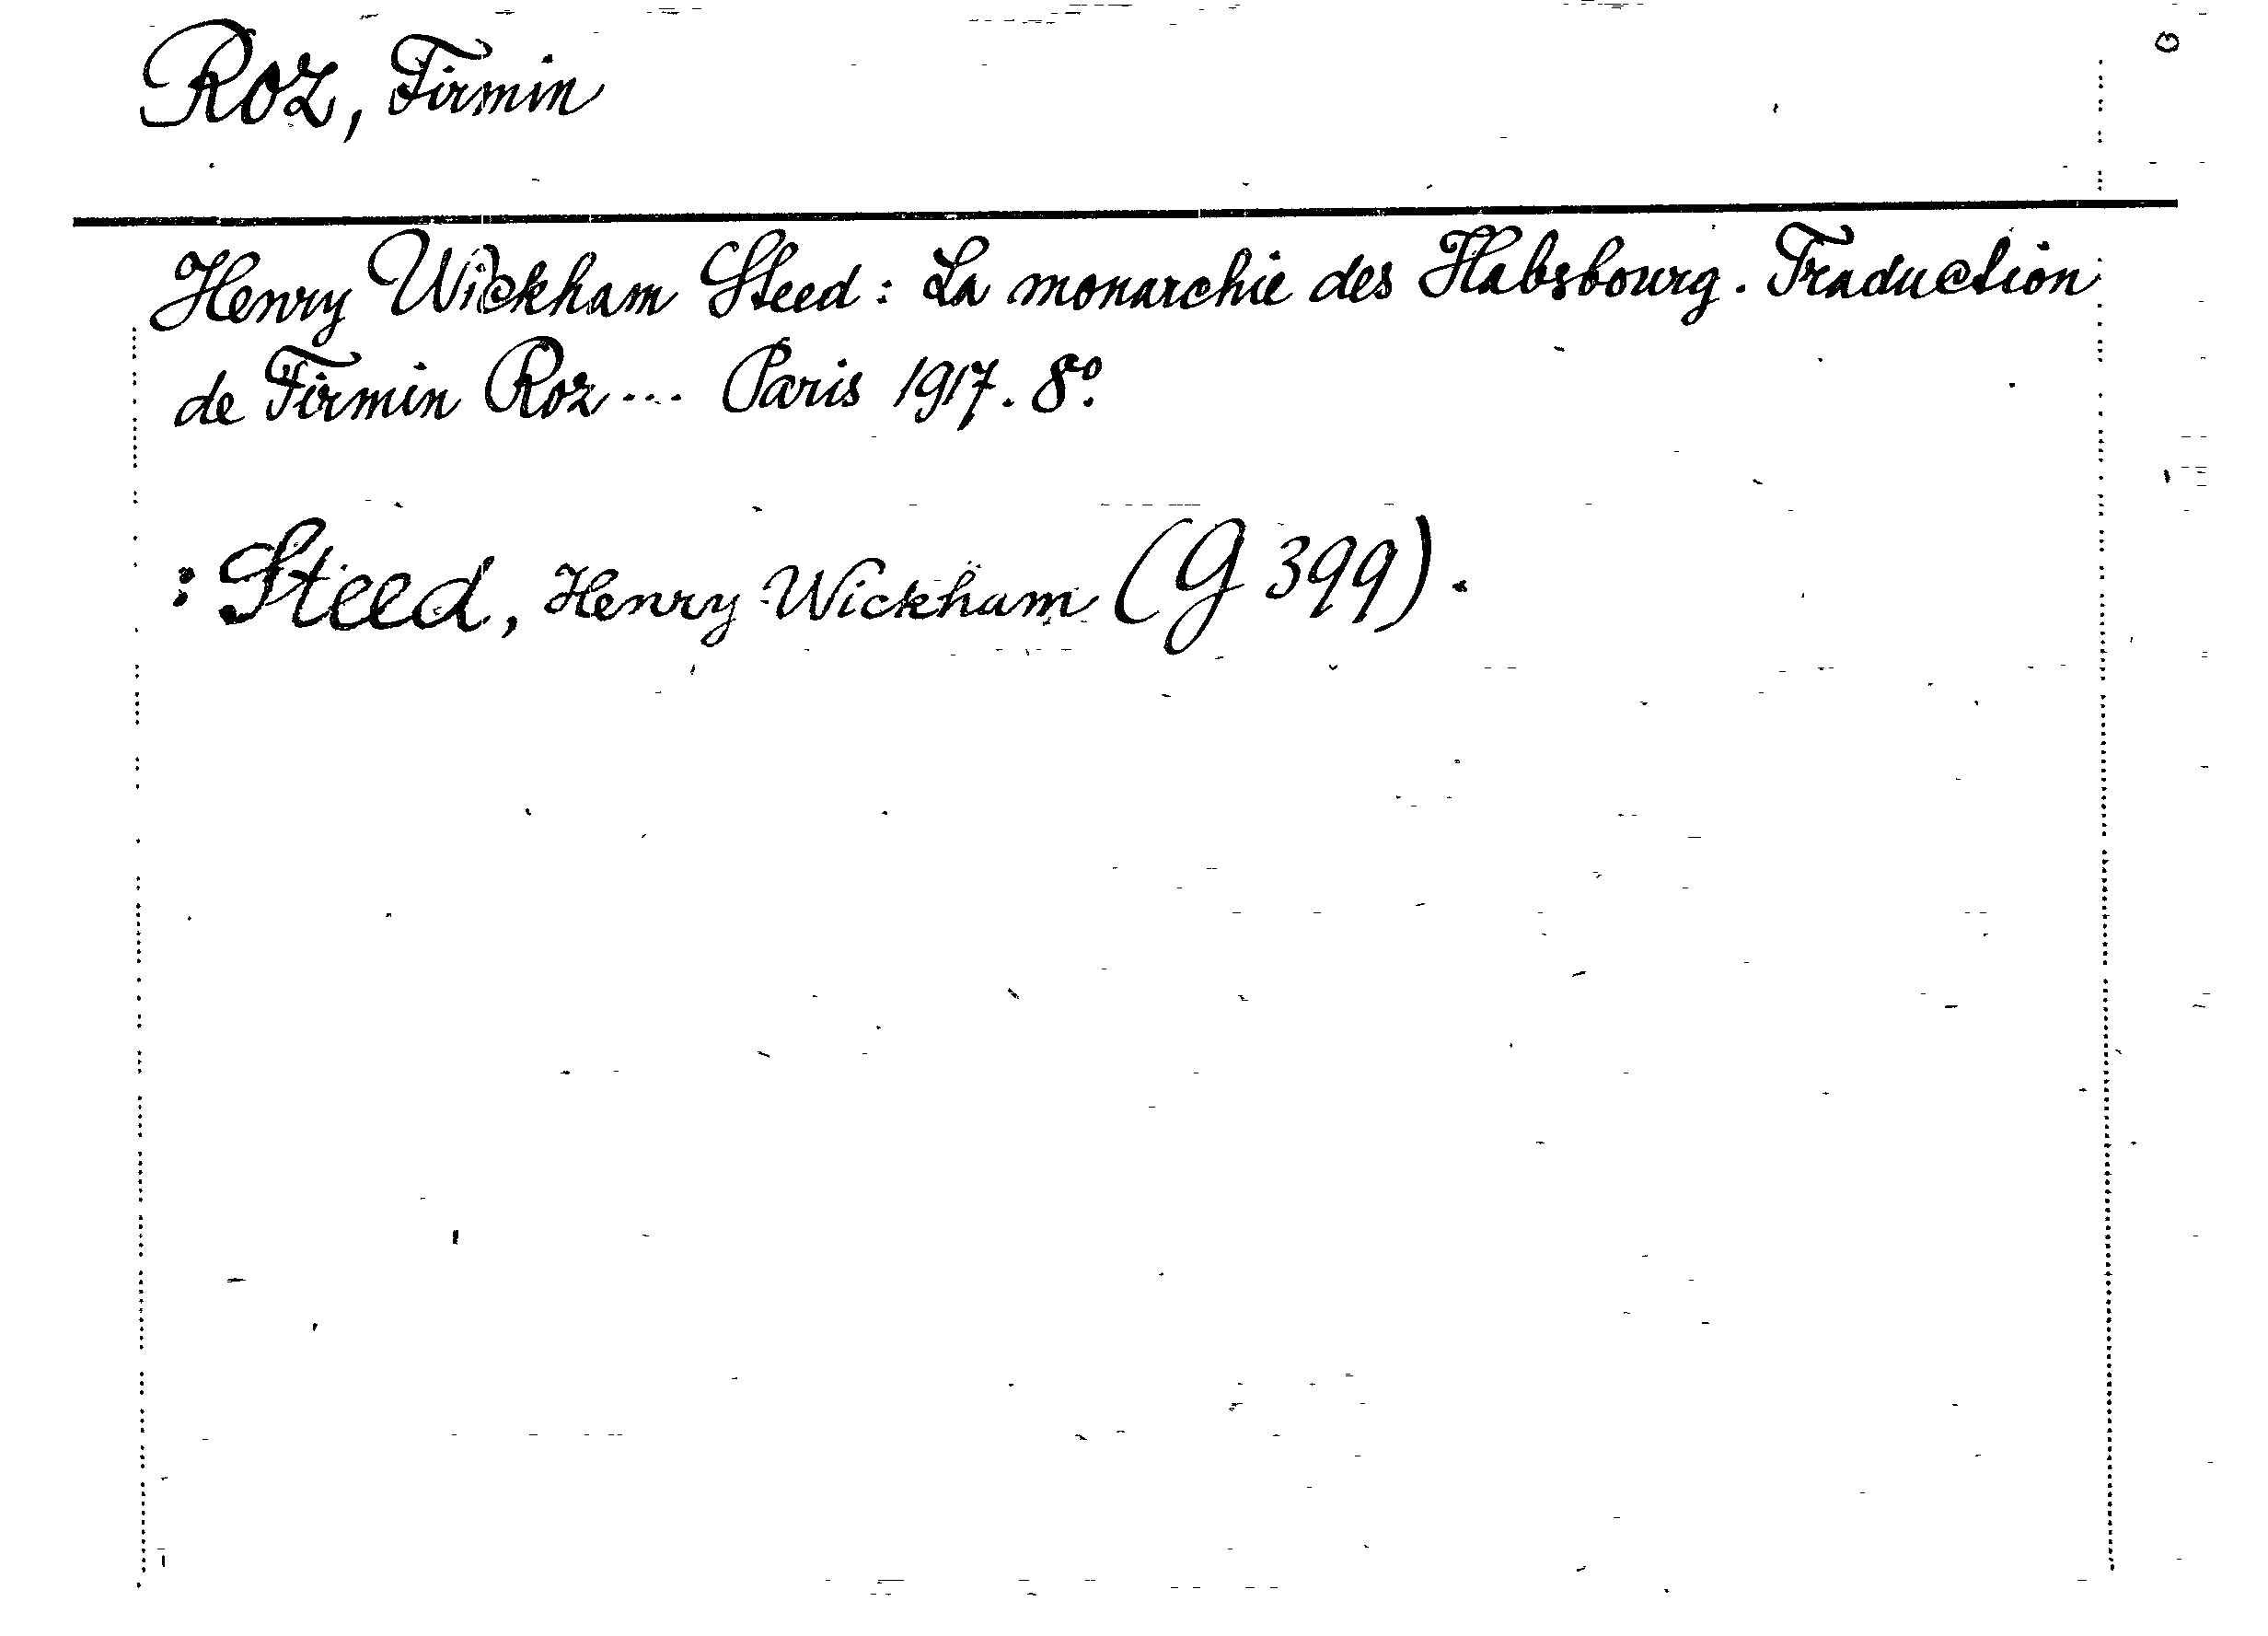 Roz, Firmin
Henry Wickham Steed: La monarchie des Habsbourg. Traduction
de Firmin Roz... Paris 1917. 8º.
: Steed, Henry Wickham (G 399).